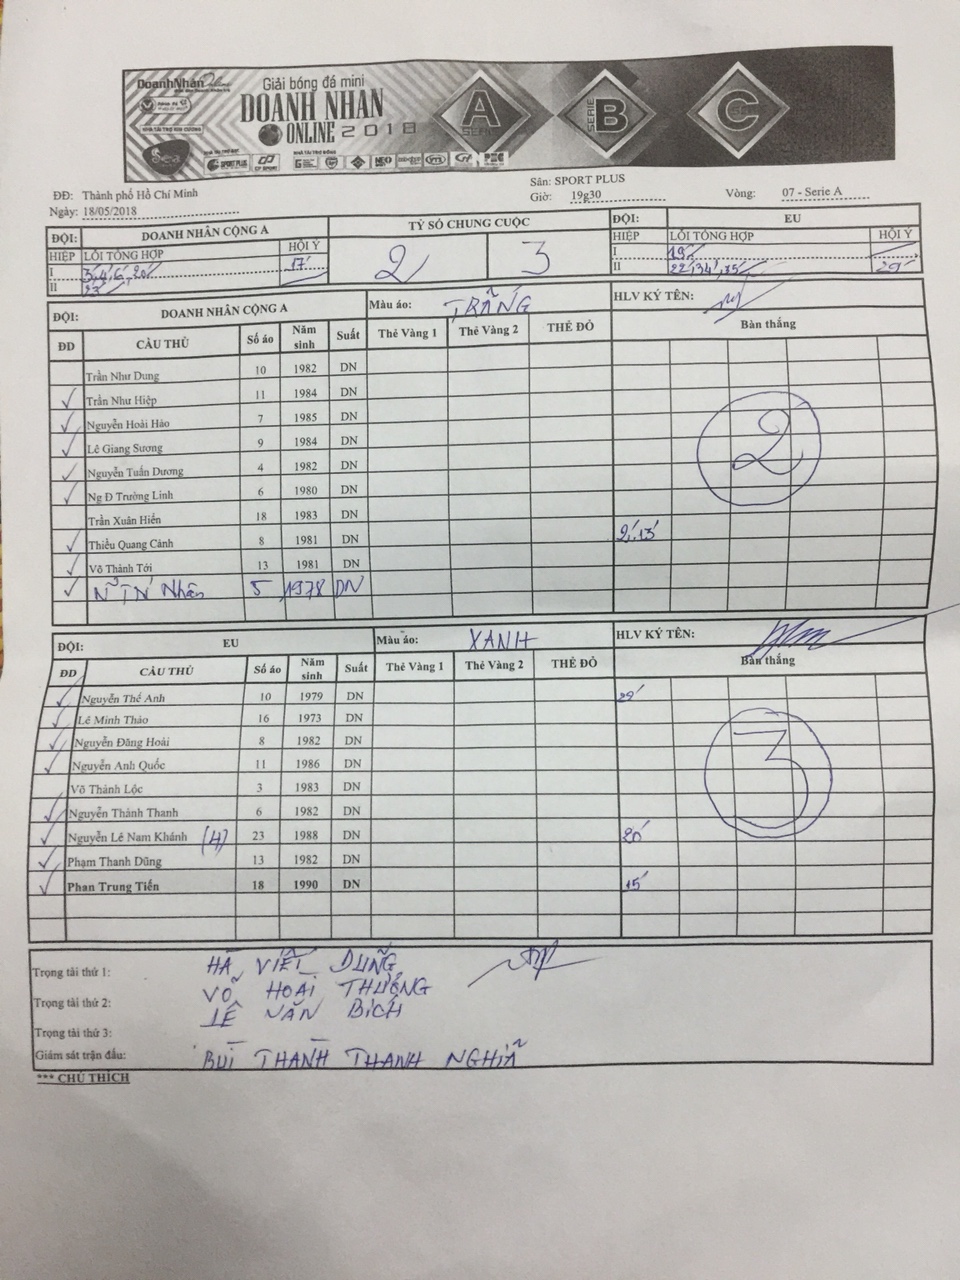 DoanhNhânOnline
Giải bóng đá mini
DOANH NHAN
ONLINE 2018
A SERIE
SERIE B
C SERIE
NHÀ TÀI TRỢ KIM CƯƠNG
NHÀ TÀI TRỢ ĐỒNG
Sea
SPORT PLUS
CP SPORT
ĐĐ: Thành phố Hồ Chí Minh
Sân: SPORT PLUS
Ngày: 18/05/2018
Giờ: 19g30
Vòng: 07 - Serie A
ĐỘI: DOANH NHÂN CỘNG A TỶ SỐ CHUNG CUỘC ĐỘI: EU
HIỆP LỖI TỔNG HỢP HỘI Ý 2 3 HIỆP LỖI TỔNG HỢP HỘI Ý
I 3',4',6',20' 17' I 19'
II 23' II 22',34',35' 29'
ĐỘI: DOANH NHÂN CỘNG A Màu áo: TRẮNG HLV KÝ TÊN:
ĐD CẦU THỦ Số áo Năm sinh Suất Thẻ Vàng 1 Thẻ Vàng 2 THẺ ĐỎ Bàn thắng
Trần Như Dung 10 1982 DN
✓ Trần Như Hiệp 11 1984 DN
✓ Nguyễn Hoài Hảo 7 1985 DN
✓ Lê Giang Sương 9 1984 DN
✓ Nguyễn Tuấn Dương 4 1982 DN
✓ Ng Đ Trường Linh 6 1980 DN
Trần Xuân Hiển 18 1983 DN
✓ Thiều Quang Cảnh 8 1981 DN 2',13'
✓ Võ Thành Tới 13 1981 DN
✓ Nhân 5 1978 DN
2
ĐỘI: EU Màu áo: XANH HLV KÝ TÊN:
ĐD CẦU THỦ Số áo Năm sinh Suất Thẻ Vàng 1 Thẻ Vàng 2 THẺ ĐỎ Bàn thắng
✓ Nguyễn Thế Anh 10 1979 DN 29'
✓ Lê Minh Thảo 16 1973 DN
✓ Nguyễn Đăng Hoài 8 1982 DN
✓ Nguyễn Anh Quốc 11 1986 DN
Võ Thành Lộc 3 1983 DN
✓ Nguyễn Thành Thanh 6 1982 DN
✓ Nguyễn Lê Nam Khánh (4) 23 1988 DN 20'
✓ Phạm Thanh Dũng 13 1982 DN
✓ Phan Trung Tiến 18 1990 DN 15'
3
Trọng tài thứ 1: HÀ VIẾT DŨNG
Trọng tài thứ 2: VÕ HOÀI THƯƠNG
Trọng tài thứ 3: LÊ VĂN BÍCH
Giám sát trận đấu: BÙI THÀNH THANH NGHĨA
*** CHÚ THÍCH